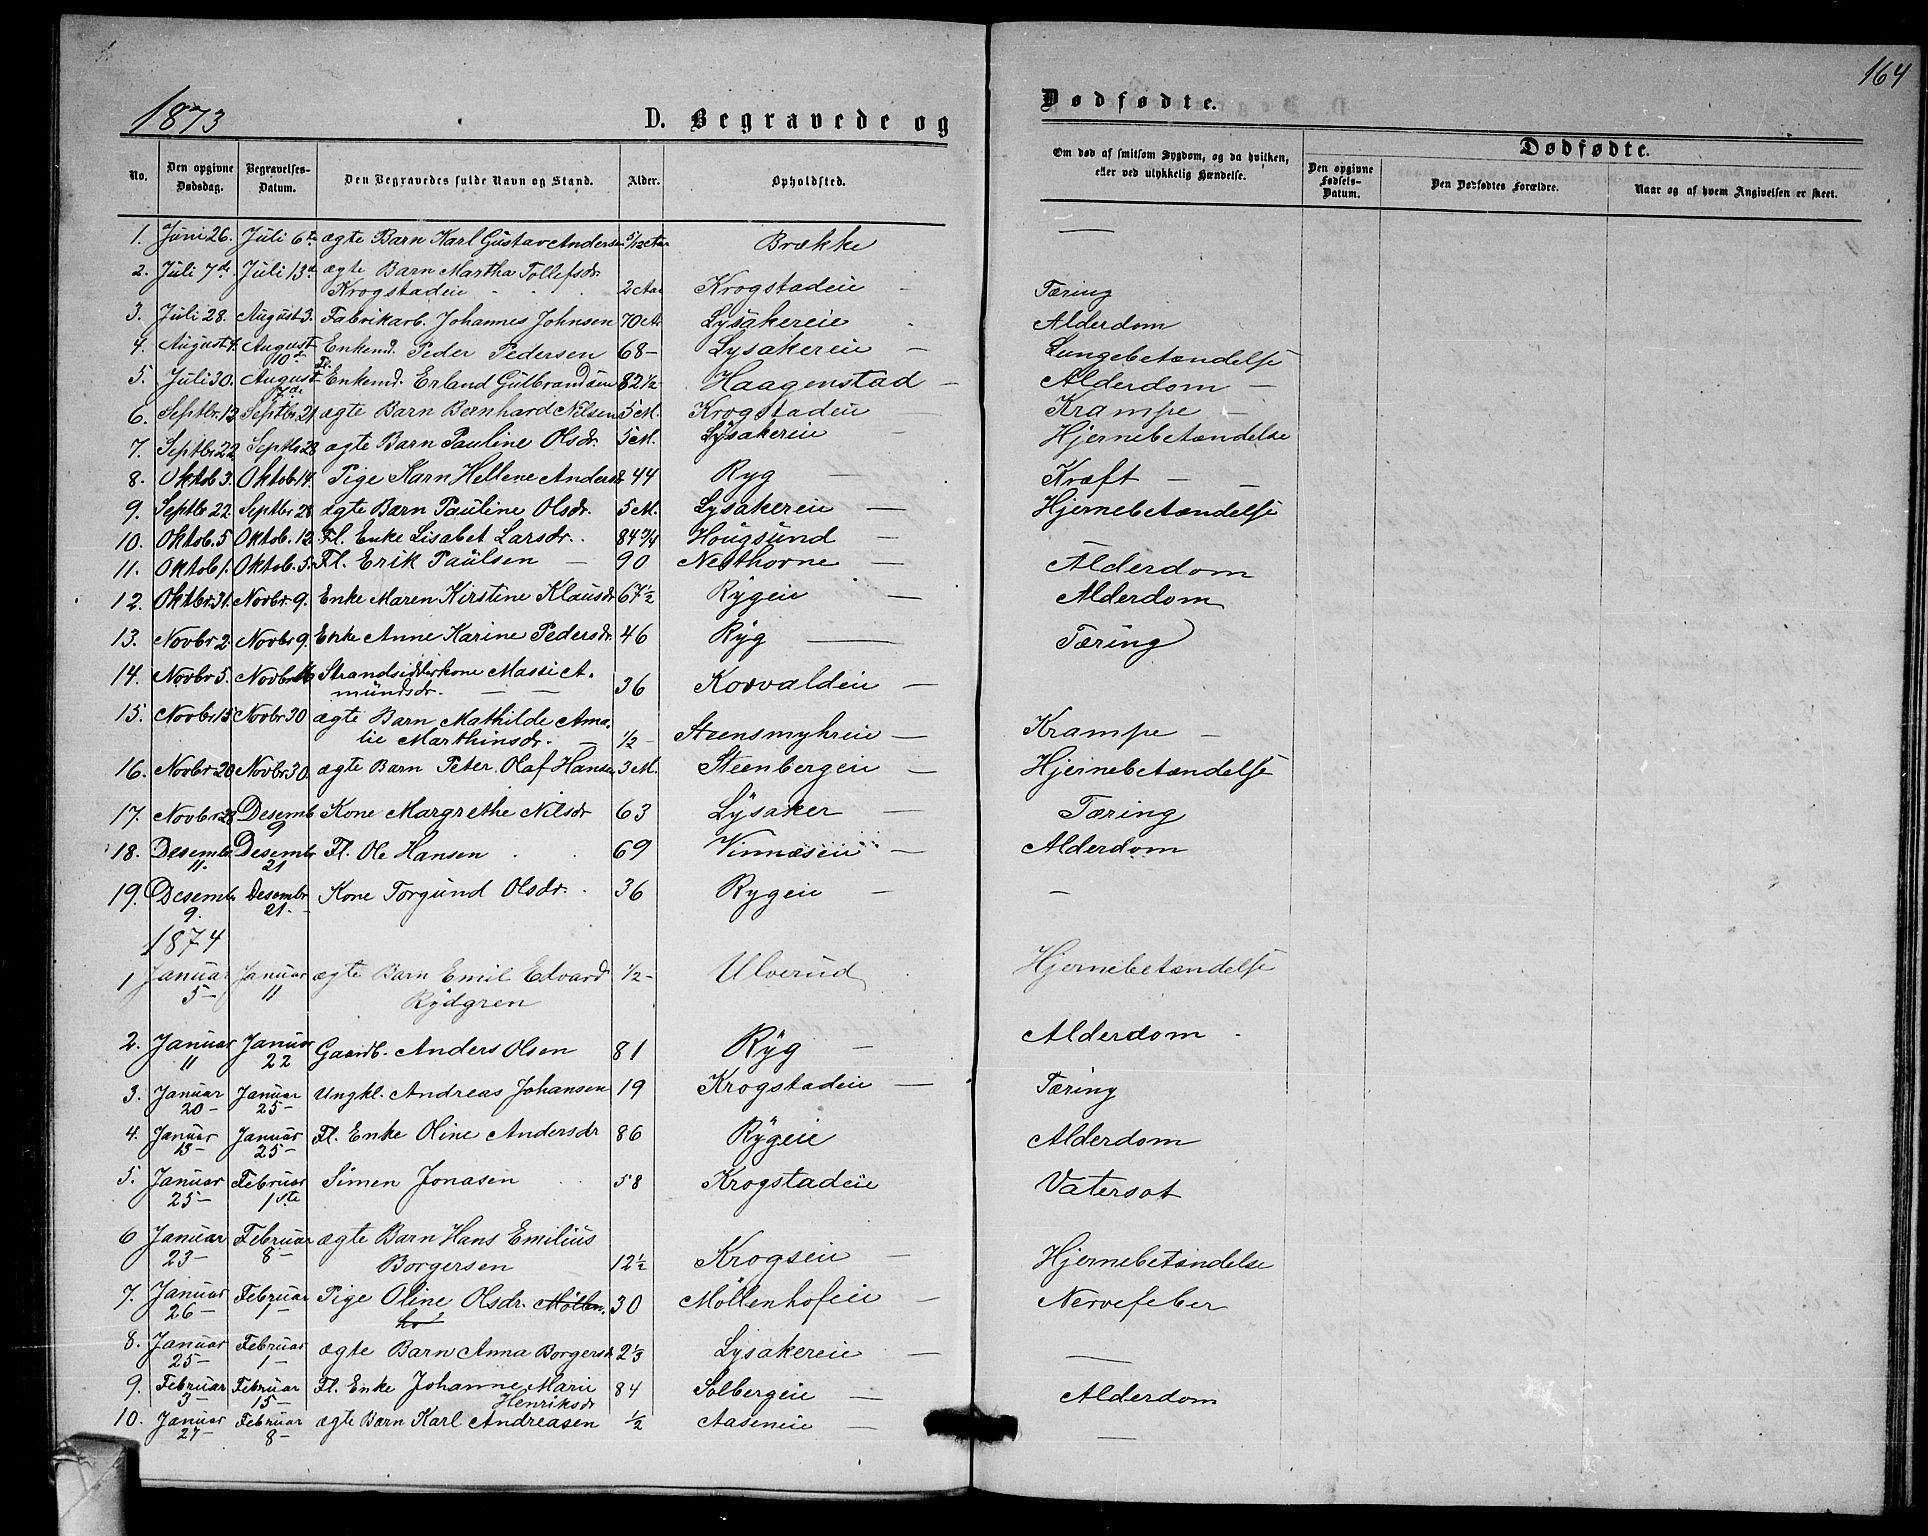 164
1873
D. Begravede og
Dødfødte.
No.
Den opgivne Dødsdag.
Begravelses-Datum.
Den Begravedes fulde Navn og Stand.
Alder.
Opholdsted.
Om død af smitsom Sygdom, og da hvilken, eller ved ulykkelig Hændelse.
Dødfødte.
Den opgivne Fødsels-Datum.
Den Dødfødtes Forældre.
Naar og af hvem Angivelsen er skeet.
1. Juni 26. Juli 6te ægte Barn Karl Gustav Andersen 5/12 Aar Brække —
2. Juli 7de Juli 13d ægte Barn Martha Tollefsdr.
Krogstadeie 2 Aar Krogstadeie Tæring
3. Juli 28. August 3. Fabrikarb. Johannes Johnsen 70 A. Lysakereie Alderdom
4. August 4. August 10de Enkemd. Peder Pedersen 68 — Lysakereie — Lungebetændelse
5. Juli 30. August Enkemd. Erland Gulbrandsen 82 1/2 Haagenstad — Alderdom —
6. Septbr. 12 Septbr. 21 ægte Barn Bernhard Nilsen 5 M. Krogstadeie Krampe —
7. Septbr 22 Septbr 28 ægte Barn Pauline Olsdr. 5 M. Lysakereie — Hjernebetændelse
8. Oktob 3. Oktob 14. Pige Karn Hellene Andersd 44 Ryg — Kræft —
9. Septbr 22 Septbr 28 ægte Barn Pauline Olsdr. 5 M. Lysakereie — Hjernebetændelse
10. Oktob. 5 Oktob. 12 Fl. Enke Lisabet Larsdr. 84 3/4 Hougsund —
11. Oktob 1. Oktob. 5. Fl. Erik Paulsen — 90 Nesthorne — Alderdom
12. Oktbr. 31. Novbr. 9. Enke Maren Kirstine Klausdr 67 1/2 Rygeie — Alderdom
13. Novbr 2. Novbr 9. Enke Anne Karine Pedersdr. 46 Ryg — Tæring
14. Novbr 5. Novbr 16 Strandsidderkone Massi A-
mundsdr. — — 36 Korvaldeie —
15. Novbr 15 Novbr 30 ægte Barn Mathilde Ama-
lie Marthinsdr. — 1/2 — Steensmyhreie — Krampe —
16. Novbr 20 Novbr 30. ægte Barn Peter Olaf Hansen 3 M. Steenbergeie — Hjernebetændelse
17. Novbr 28 Desemb 9 Kone Margrethe Nilsdr 63 Lysaker — Tæring
18. Desembr 11. Desembr 21 Fl. Ole Hansen 69 Vinnæseie — Alderdom
19. Desembr 9. Desembr 21. — Kone Torgund Olsdr. 36 Rygeie — —
1874
1 Januar 5 — Januar 11 ægte Barn Emil Edvard
Rydgren 1/2 — Ulverud Hjernebetændelse
2. Januar 11 Januar 22 Gaardb. Anders Olsen 81 Ryg — Alderdom —
3. Januar 20 — Januar 25 — Ungkl. Andreas Johansen 19 Krogstadeie — Tæring
4. Januar 15 — Januar 25 — Fl. Enke Oline Andersdr 86 Rygeie Alderdom
5. Januar 25 — Februar 1ste Simen Jonasen 58 Krogstadeie Vatersot
6 Januar 23 — Februar 8 — ægte Barn Hans Emilius
Borgersen 12 1/2 Krogseie — Hjernebetændelse
7. Januar 26 — Februar 1 — Pige Oline Olsdr. Møllen-
ho 30 Møllenhofeie — Nervefeber
8. Januar 25 — Februar 1 — ægte Barn Anna Borgersd 2 1/3 Lysakereie — —
9. Februar 3 — Februar 15 — Fl. Enke Johanne Marie
Henriksdr 84 Solbergeie — Alderdom
10. Januar 27 — Februar 8 — ægte Barn Karl Andreasen 1/2 Aaseneie — —